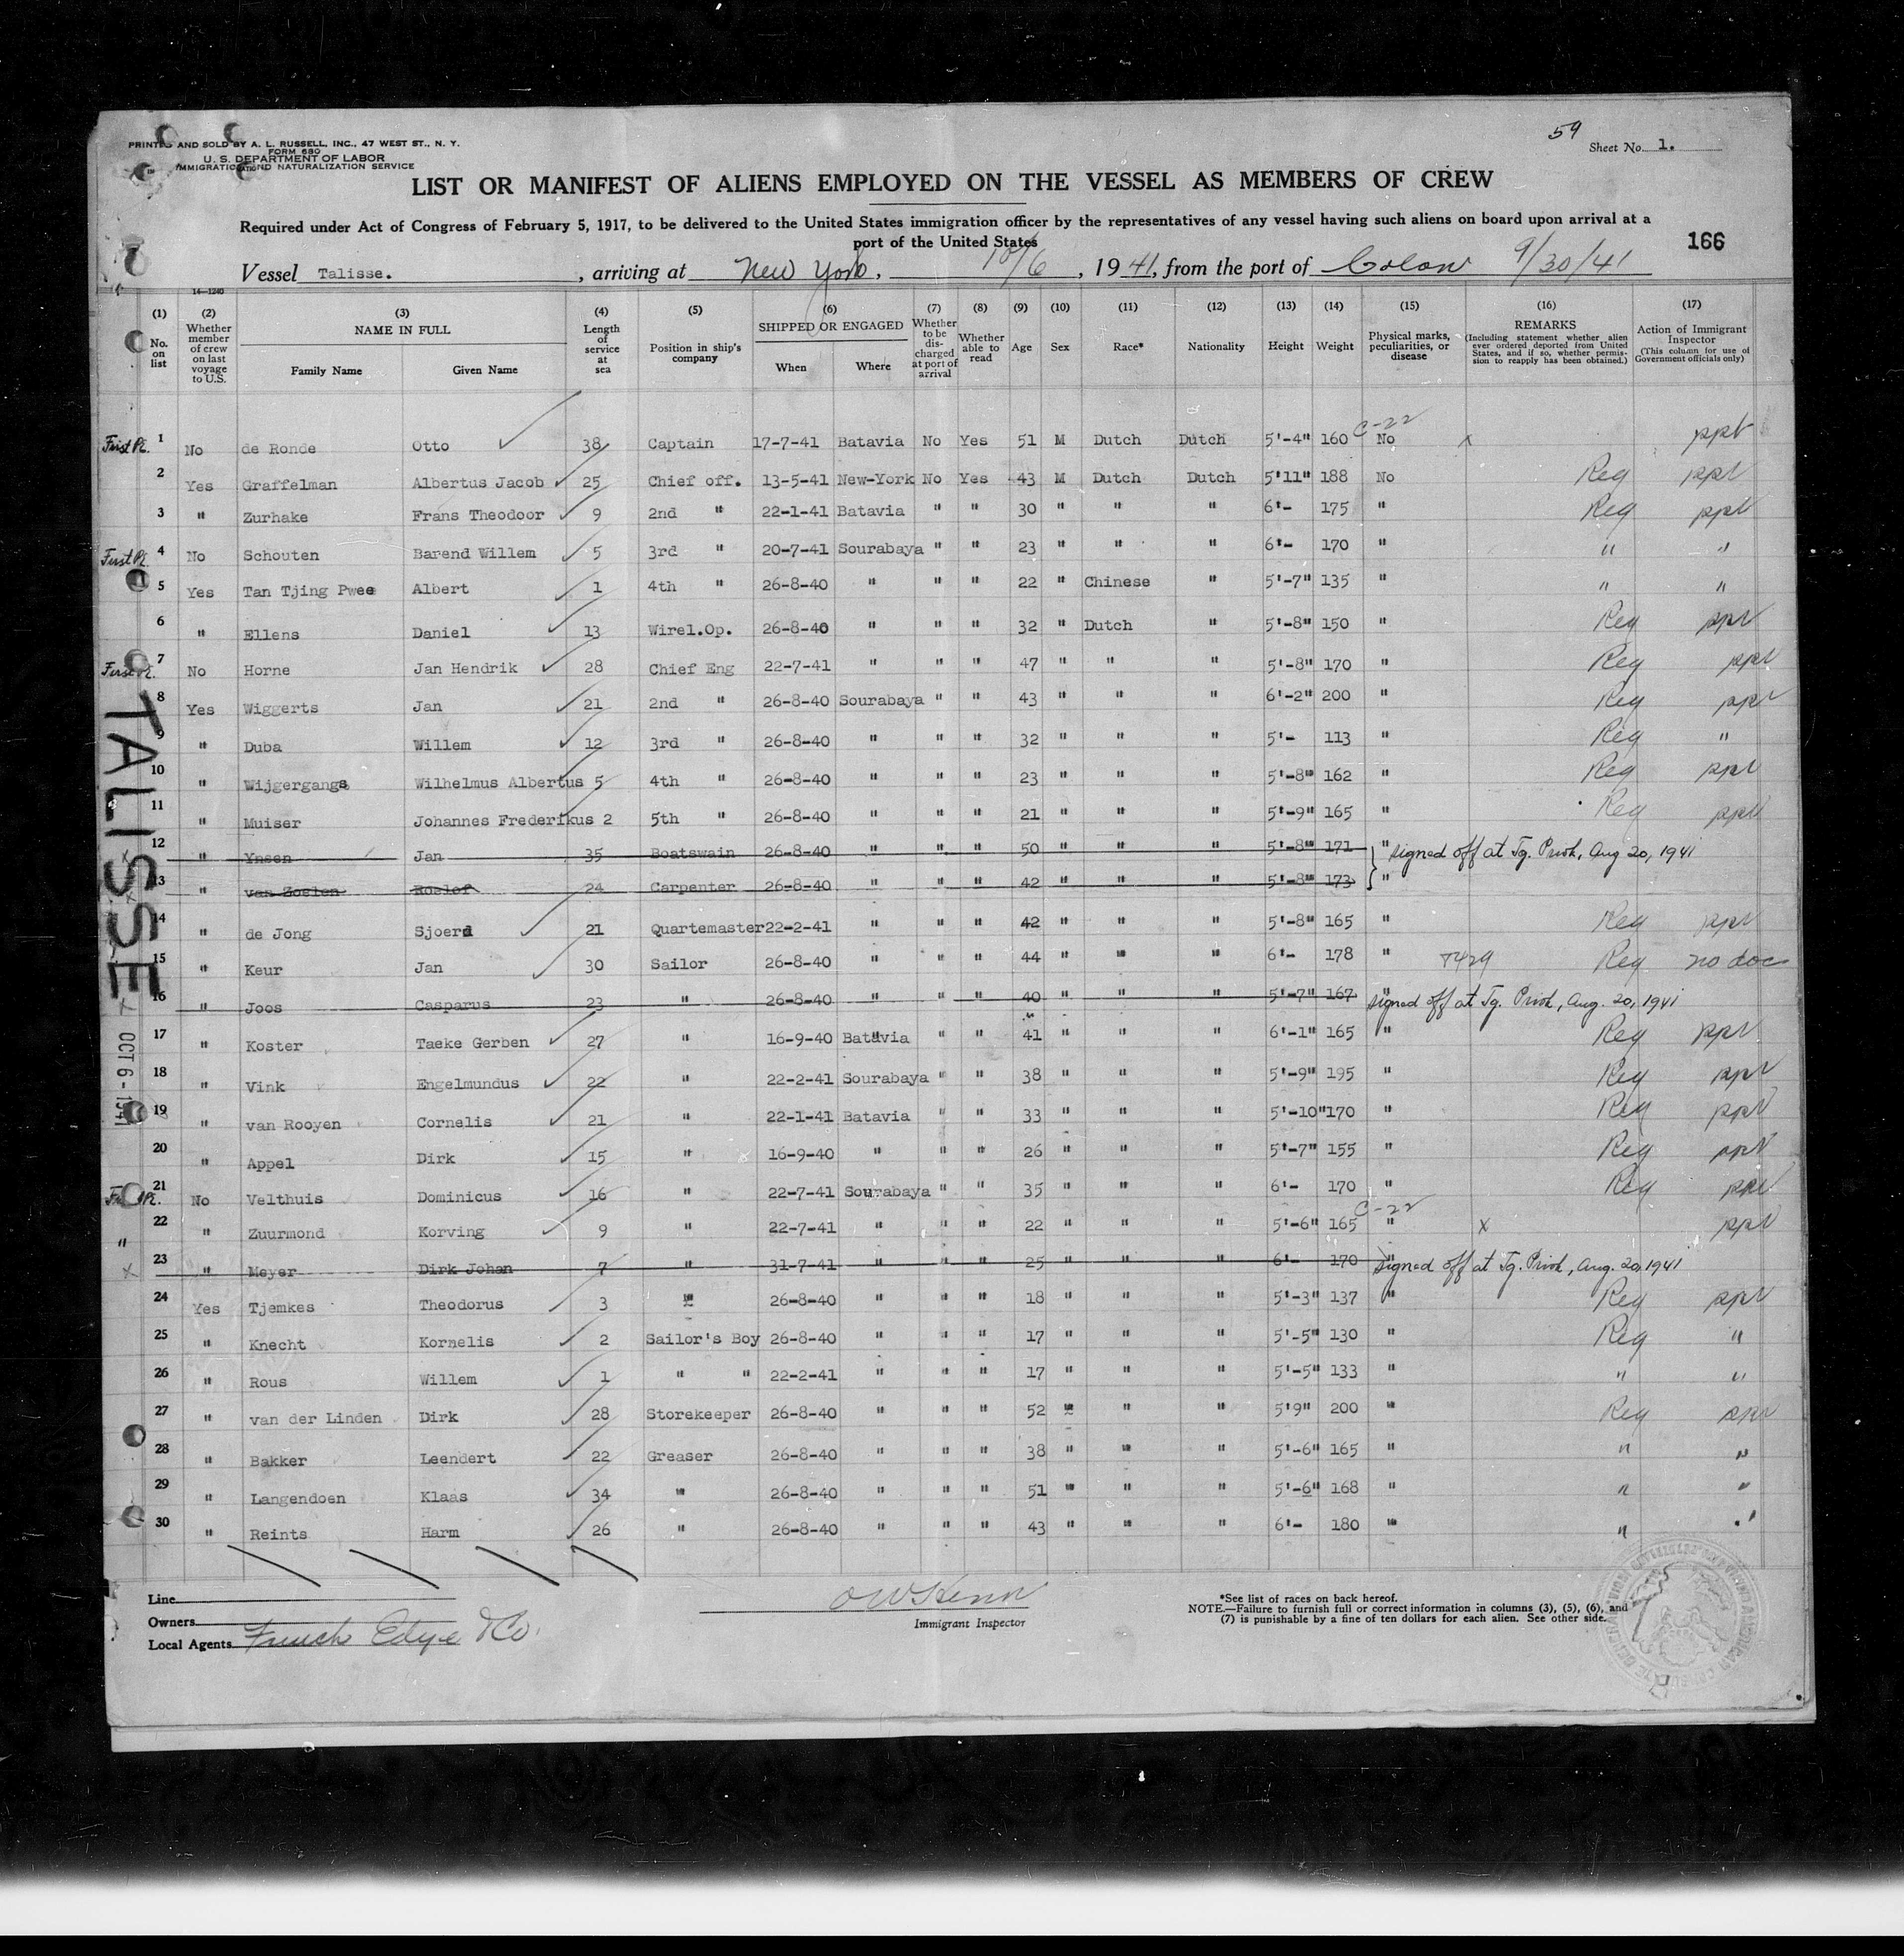 PRINTED AND SOLD BY A. L. RUSSELL, INC., 47 WEST ST., N. Y.
FORM 680
U. S. DEPARTMENT OF LABOR
IMMIGRATION AND NATURALIZATION SERVICE
59
Sheet No. 1.
LIST OR MANIFEST OF ALIENS EMPLOYED ON THE VESSEL AS MEMBERS OF CREW
Required under Act of Congress of February 5, 1917, to be delivered to the United States immigration officer by the representatives of any vessel having such aliens on board upon arrival at a
port of the United States
166
Vessel Talisse. , arriving at New York, 10/6 , 19 41, from the port of Colon 9/30/41
14—1240
(1) (2) (3) (4) (5) (6) (7) (8) (9) (10) (11) (12) (13) (14) (15) (16) (17)
No. on list
Whether member of crew on last voyage to U.S.
NAME IN FULL
Family Name
Given Name
Length of service at sea
Position in ship's company
SHIPPED OR ENGAGED
When
Where
Whether to be discharged at port of arrival
Whether able to read
Age
Sex
Race*
Nationality
Height
Weight
Physical marks, peculiarities, or disease
REMARKS
(Including statement whether alien ever ordered deported from United States, and if so, whether permission to reapply has been obtained.)
Action of Immigrant Inspector
(This column for use of Government officials only)
1 No de Ronde Otto 38 Captain 17-7-41 Batavia No Yes 51 M Dutch Dutch 5'-4" 160 C-22 No x ppt
2 Yes Graffelman Albertus Jacob 25 Chief off. 13-5-41 New-York No Yes 43 M Dutch Dutch 5'11" 188 No Reg ppt
3 " Zurhake Frans Theodoor 9 2nd " 22-1-41 Batavia " " 30 " " " 6'- 175 " Reg ppt
First Pt. 4 No Schouten Barend Willem 5 3rd " 20-7-41 Sourabaya " " 23 " " " 6'- 170 " " "
5 Yes Tan Tjing Pwee Albert 1 4th " 26-8-40 " " " 22 " Chinese " 5'-7" 135 " " "
6 " Ellens Daniel 13 Wirel.Op. 26-8-40 " " " 32 " Dutch " 5'-8" 150 " Reg ppt
7 No Horne Jan Hendrik 28 Chief Eng 22-7-41 " " " 47 " " " 5'-8" 170 " Reg ppt
8 Yes Wiggerts Jan 21 2nd " 26-8-40 Sourabaya " " 43 " " " 6'-2" 200 " Reg ppt
9 " Duba Willem 12 3rd " 26-8-40 " " " 32 " " " 5'- 113 " Reg "
10 " Wijgergangs Wilhelmus Albertus 5 4th " 26-8-40 " " " 23 " " " 5'-8" 162 " Reg ppt
11 " Muiser Johannes Frederikus 2 5th " 26-8-40 " " " 21 " " " 5'-9" 165 " Reg ppt
12 " Ynsen Jan 35 Boatswain 26-8-40 " " " 50 " " " 5'-8" 171 " signed off at Tg. Priok, Aug 20, 1941
13 " van Soelen Roelof 24 Carpenter 26-8-40 " " " 42 " " " 5'-8" 173 "
14 " de Jong Sjoerd 21 Quartemaster 22-2-41 " " " 42 " " " 5'-8" 165 " Reg ppt
15 " Keur Jan 30 Sailor 26-8-40 " " " 44 " " " 6'- 178 " Reg no doc
16 " Joos Casparus 23 " 26-8-40 " " " 40 " " " 5'-7" 167 " signed off at Tg. Priok, Aug. 20, 1941
17 " Koster Taeke Gerben 27 " 16-9-40 Batavia " " 41 " " " 6'-1" 165 " Reg ppt
18 " Vink Engelmundus 22 " 22-2-41 Sourabaya " " 38 " " " 5'-9" 195 " Reg ppt
19 " van Rooyen Cornelis 21 " 22-1-41 Batavia " " 33 " " " 5'-10" 170 " Reg ppt
20 " Appel Dirk 15 " 16-9-40 " " " 26 " " " 5'-7" 155 " Reg ppt
21 No Velthuis Dominicus 16 " 22-7-41 Sourabaya " " 35 " " " 6'- 170 " Reg ppt
22 " Zuurmond Korving 9 " 22-7-41 " " " 22 " " " 5'-6" 165 C-22 " x ppt
23 " Meyer Dirk Johan 7 " 31-7-41 " " " 25 " " " 6'- 170 " signed off at Tg. Priok, Aug. 20, 1941
24 Yes Tjemkes Theodorus 3 " 26-8-40 " " " 18 " " " 5'-3" 137 " Reg ppt
25 " Knecht Kornelis 2 Sailor's Boy 26-8-40 " " " 17 " " " 5'-5" 130 " Reg "
26 " Rous Willem 1 " " 22-2-41 " " " 17 " " " 5'-5" 133 " " "
27 " van der Linden Dirk 28 Storekeeper 26-8-40 " " " 52 " " " 5'9" 200 " Reg ppt
28 " Bakker Leendert 22 Greaser 26-8-40 " " " 38 " " " 5'-6" 165 " " "
29 " Langendoen Klaas 34 " 26-8-40 " " " 51 " " " 5'-6" 168 " " "
30 " Reints Harm 26 " 26-8-40 " " " 43 " " " 6'- 180 " " "
TALISSE
OCT 6 - 1941
Line
Owners
Local Agents Funch Edye & Co.
Immigrant Inspector
*See list of races on back hereof.
NOTE.—Failure to furnish full or correct information in columns (3), (5), (6), and
(7) is punishable by a fine of ten dollars for each alien. See other side.